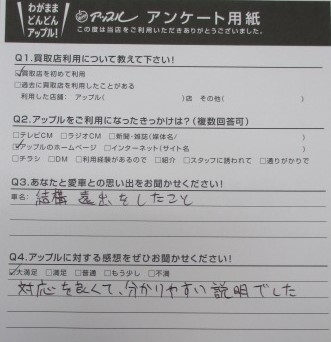 わがまま
どんどん
アップル!
アップル アンケート用紙
この度は当店をご利用いただきありがとうございました。
Q1.買取店利用について教えて下さい!
☑買取店を初めて利用
□過去に買取店を利用したことがある
利用した店舗: アップル( )店 その他( )
Q2.アップルをご利用になったきっかけは?(複数回答可)
□テレビCM □ラジオCM □新聞・雑誌(媒体名/ )
☑アップルのホームページ □インターネット(サイト名 )
□チラシ □DM □利用経験があるので □紹介 □スタッフに誘われて □通りがかりで
Q3.あなたと愛車との思い出をお聞かせください!
車名: 結構遠出をしたこと
Q4.アップルに対する感想をぜひお聞かせください!
☑大満足 □満足 □普通 □もう少し □不満
対応も良くて、分かりやすい説明でした